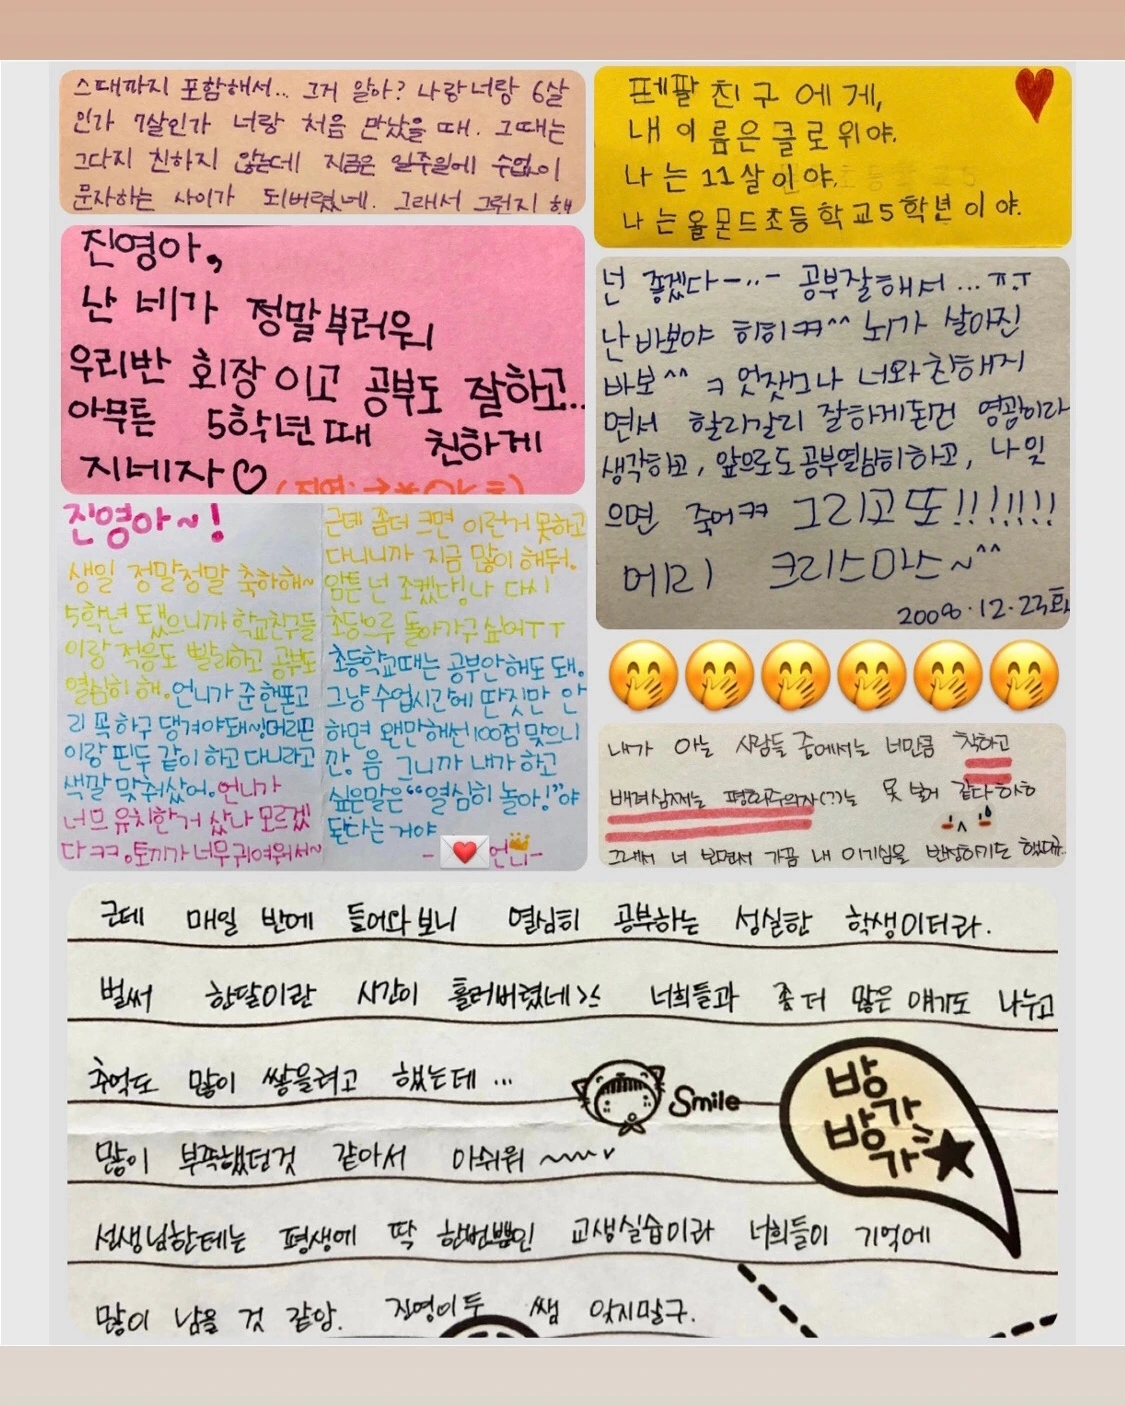 스때까지 포함해서.. 그거 알아? 나랑너랑 6살
인가 7살인가 너랑 처음 만났을 때. 그때는
그다지 친하지 않는데 지금은 일주일에 수없이
문자하는 사이가 되버렸네. 그래서 그런지 해
펜팔 친구에게,
내 이름은 클로위야.
나는 11살인야.
나는 올몬드초등학교5학년이야.
진영아,
난 네가 정말부러워
우리반 회장이고 공부도 잘하고..
아무튼 5학년때 친하게
지네자♡
넌 좋겠다-..- 공부잘해서... ㅠ.ㅜ
난바보야 히히ㅋㅋ^^ 뇌가 살아진
바보^^ ㅋ 엇쨋그나 너와친해지
면서 할리갈리 잘하게돈건 영광이라
생각하고, 앞으로도공부열심히하고, 나잊
으면 죽어ㅋㅋ 그리고또!!!!!!!
메리 크리스마스~^^
2008.12.23화
진영아~!
생일 정말정말 축하해~
5학년 됐으니까 학교친구들
이랑 적응도 빨리하고 공부도
열심히 해.언니가 준 핸폰고
리 꼭 하구 댕겨야돼~!머리핀
이랑 핀두 같이 하고 다니라고
색깔 맞춰샀어.언니가
너므 유치한거 샀나 모르겠
다ㅋㅋ.토끼가너무귀여워서~
근데 좀더 크면 이런거 못하고
다니니까 지금 많이 해둬.
암튼 넌 조켔대!나 다시
초등으루 돌아가구 싶어ㅜㅜ
초등학교때는 공부안해도 돼.
그냥수업시간에 딴짓만 안
하면 왠만해선100점 맞으니
깐. 음 그니까 내가 하고
싶은말은“열심히 놀아!”야
된다는거야
- 언니-
내가 아는 사람들 중에서는 너만큼 착하고
배려심쩌는 평화주의자(??)는 못 본거 같다하하
그래서 너 보면서 가끔 내 이기심을 반성하기도 했다규
근데 매일 반에 들어와보니 열심히 공부하는 성실한 학생이더라.
벌써 한달이란 시간이 흘러버렸네>_< 너희들과 좀 더 많은 얘기도 나누고
추억도 많이 쌓을려고 했는데 ...
Smile
방가
방가
많이 부족했던것 같아서 아쉬워~
선생님한테는 평생에 딱 한번뿐인 교생실습이라 너희들이 기억에
많이 남을 것 같앙. 진영이두 쌤 잊지말구.